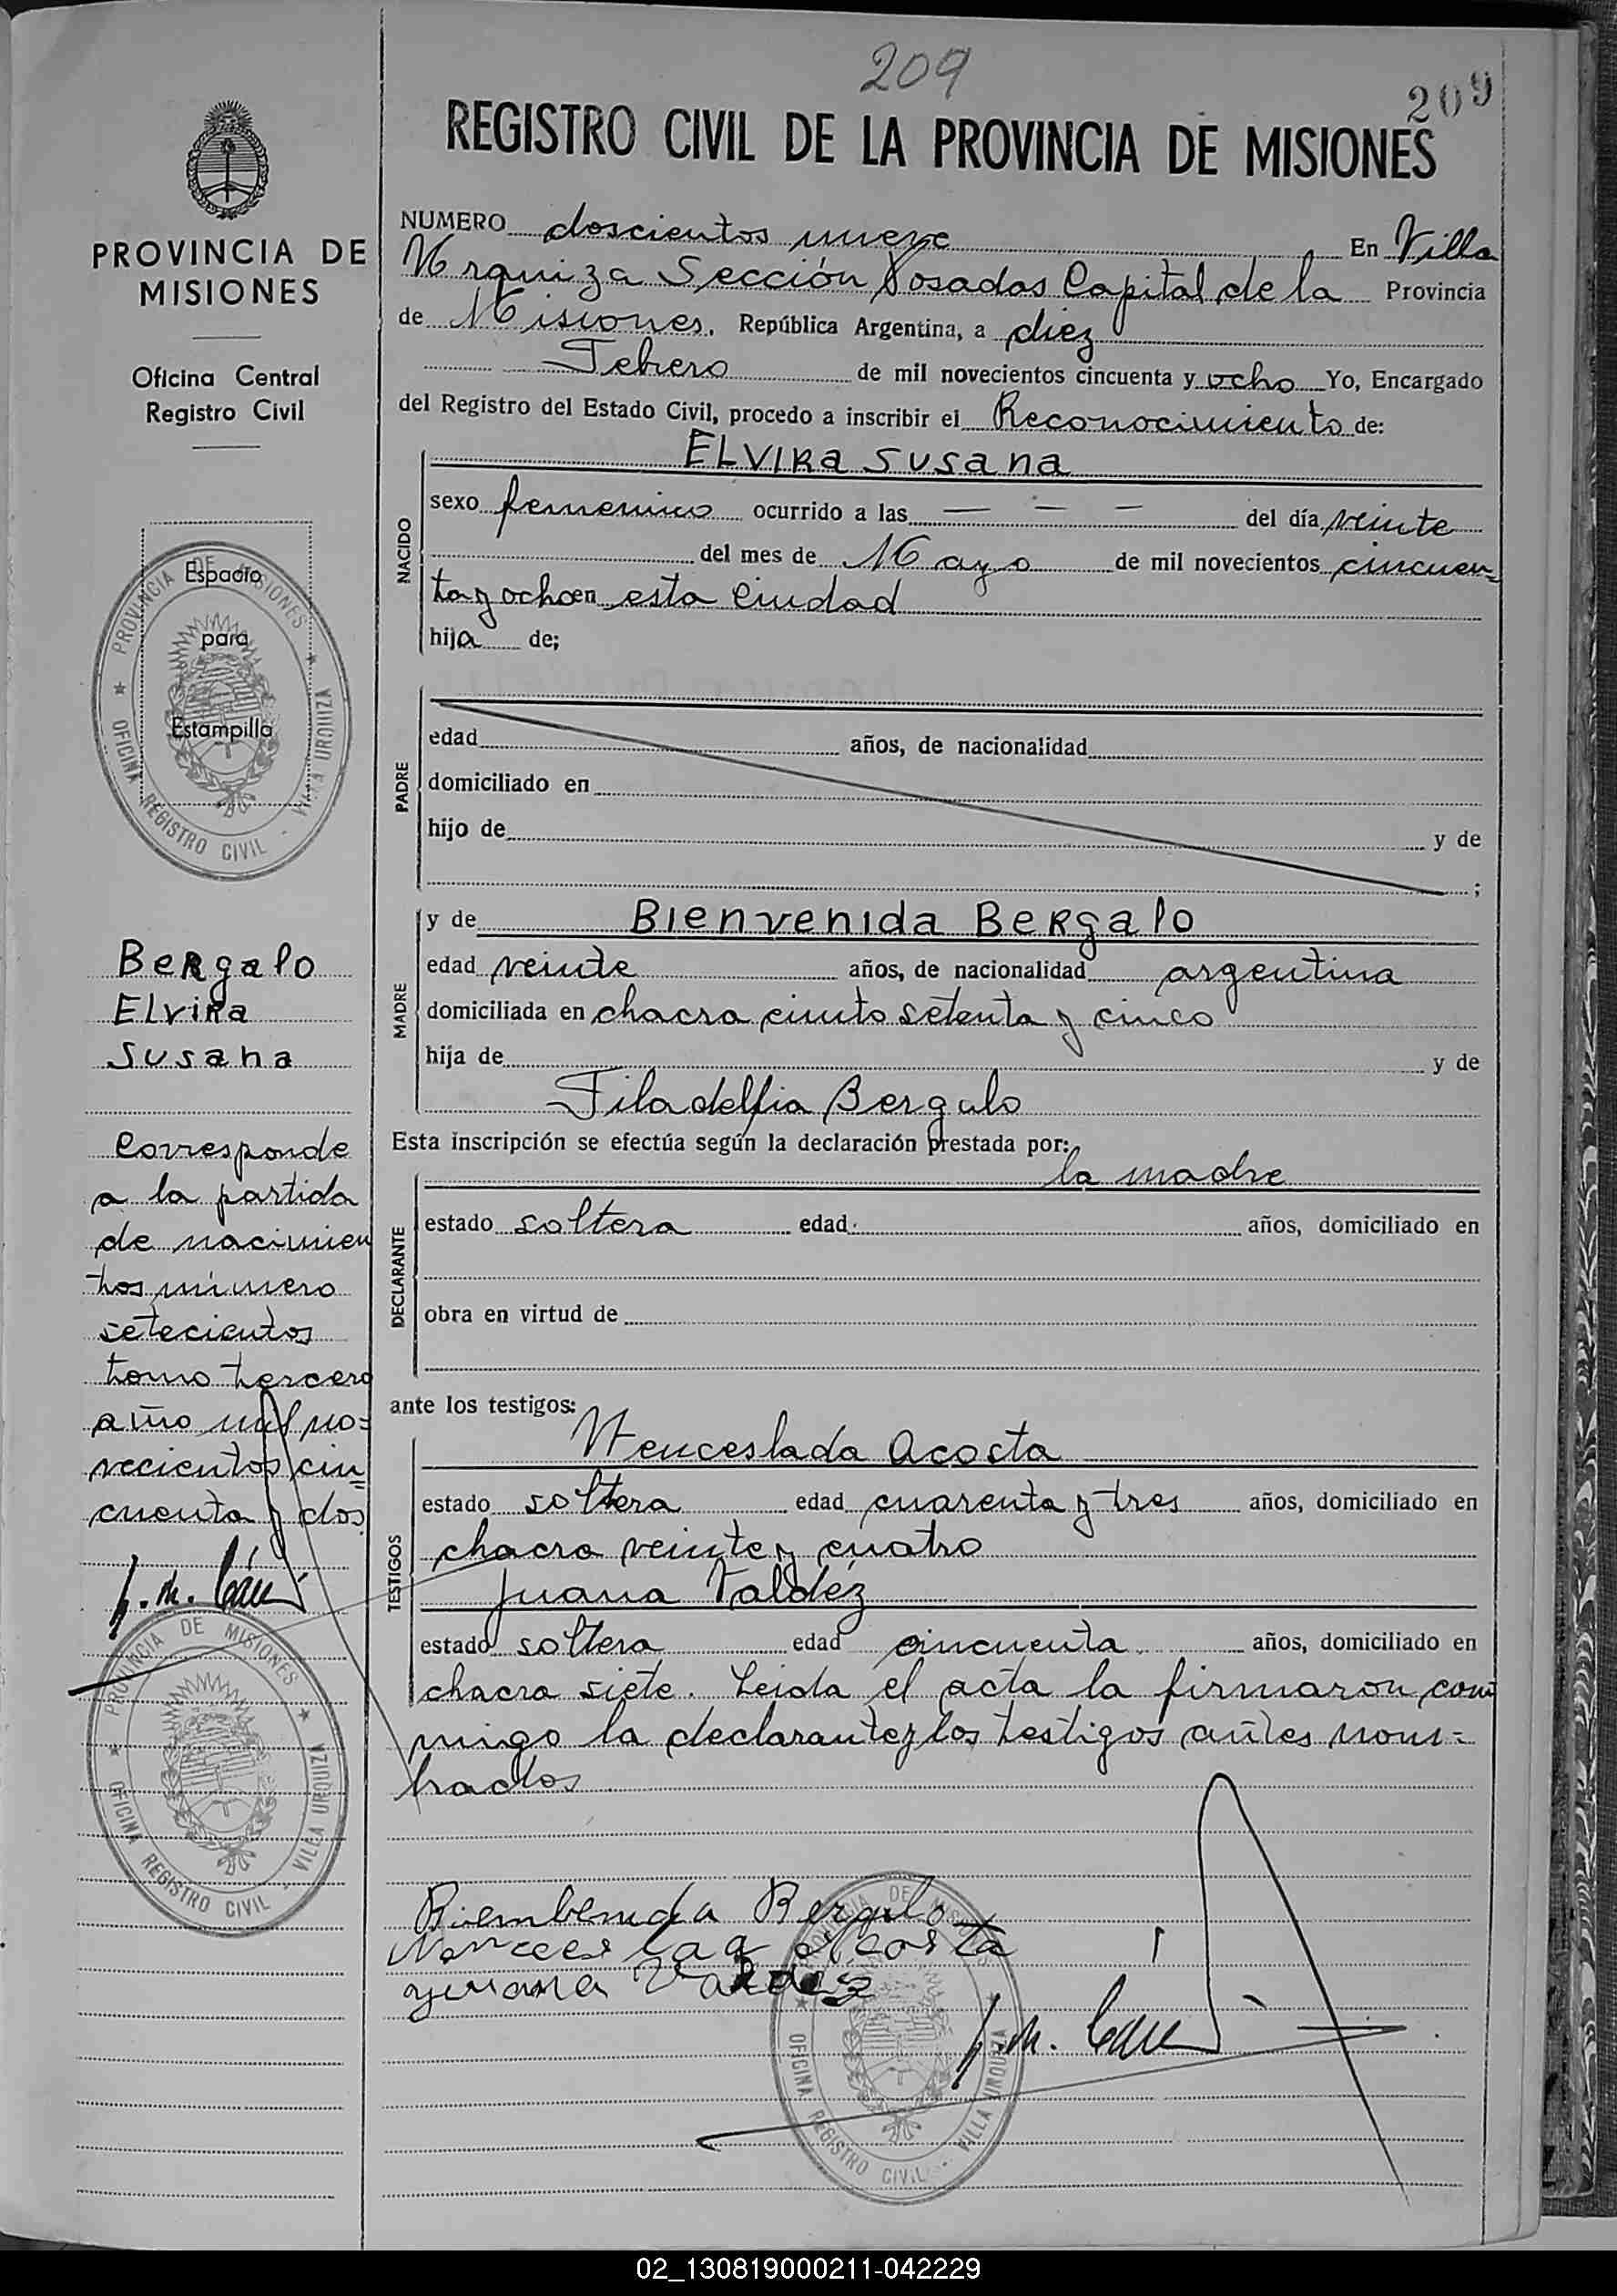 209
209
REGISTRO CIVIL DE LA PROVINCIA DE MISIONES
NUMERO doscientos nueve En Villa
Urquiza Sección Posadas Capital de la Provincia
de Misiones, República Argentina, a diez
Febrero de mil novecientos cincuenta y ocho Yo, Encargado
del Registro del Estado Civil, procedo a inscribir el Reconocimiento de:
NACIDO
ELVIRA SUSANA
sexo femenino ocurrido a las — — — del día veinte
del mes de Mayo de mil novecientos cincuen=
ta y ocho en esta Ciudad
hija de;
PADRE
edad años, de nacionalidad
domiciliado en
hijo de y de
;
MADRE
y de Bienvenida Bergalo
edad veinte años, de nacionalidad argentina
domiciliada en chacra ciento setenta y cinco
hija de y de
Filadelfia Bergalo
Esta inscripción se efectúa según la declaración prestada por:
DECLARANTE
la madre
estado soltera edad años, domiciliado en
obra en virtud de
ante los testigos:
TESTIGOS
Wenceslada Acosta
estado soltera edad cuarenta y tres años, domiciliado en
chacra veinte y cuatro
Juana Valdéz
estado soltera edad cincuenta años, domiciliado en
chacra siete. Leida el acta la firmaron con
migo la declarante y los testigos antes nom=
brados
Biembenida Bergalo
Juana Valdez
PROVINCIA DE MISIONES
OFICINA REGISTRO CIVIL - VILLA URQUIZA
PROVINCIA DE
MISIONES
Oficina Central
Registro Civil
Espacio
para
Estampilla
PROVINCIA DE MISIONES
OFICINA REGISTRO CIVIL - VILLA URQUIZA
Bergalo
Elvira
Susana
Corresponde
a la partida
de nacimien
tos número
setecientos
tomo tercero
año mil no=
vecientos cin
cuenta y dos
PROVINCIA DE MISIONES
OFICINA REGISTRO CIVIL - VILLA URQUIZA
02_130819000211-042229